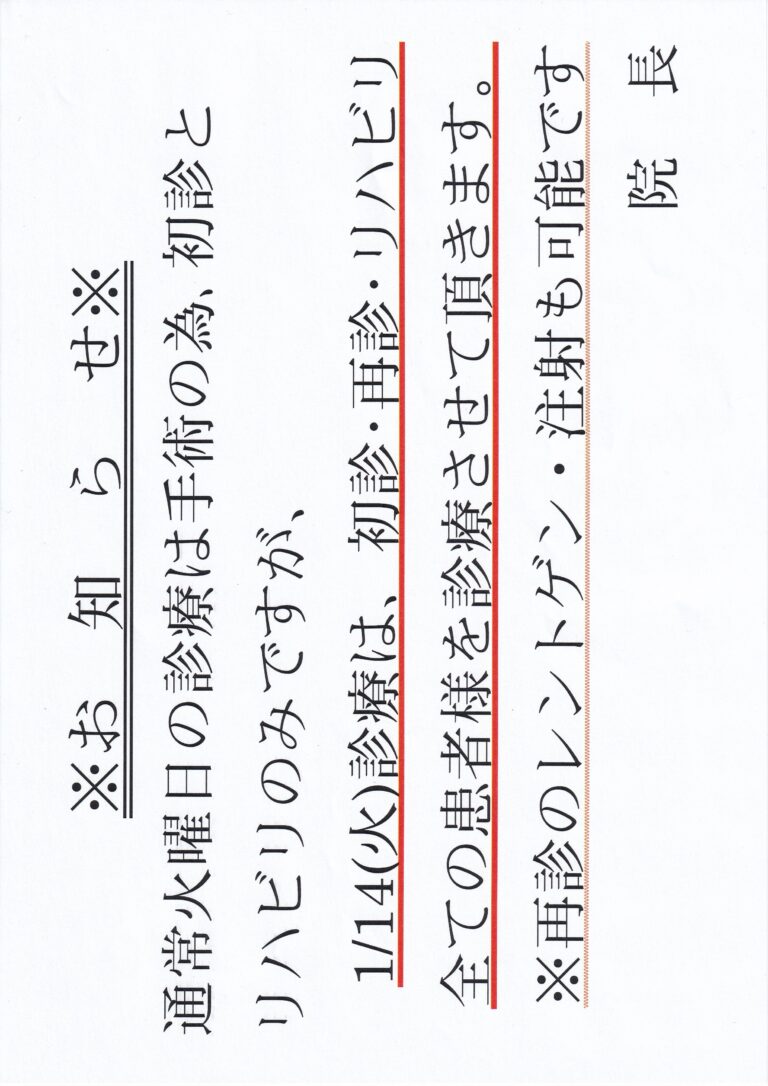 ※お 知 ら せ※
通常火曜日の診療は手術の為、初診と
リハビリのみですが、
1/14(火)診療は、初診・再診・リハビリ
全ての患者様を診療させて頂きます。
※再診のレントゲン・注射も可能です
院 長